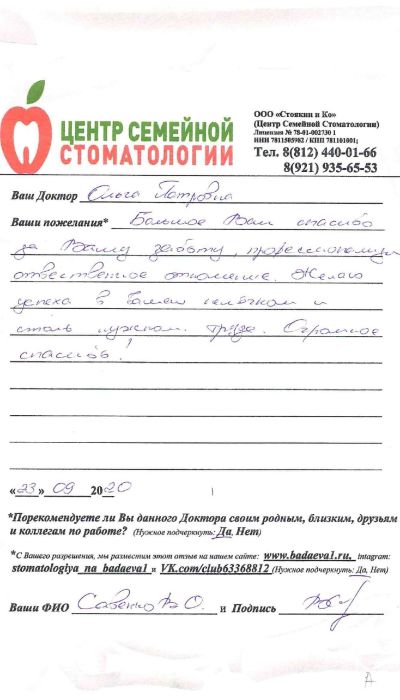 ЦЕНТР СЕМЕЙНОЙ
СТОМАТОЛОГИИ
ООО «Стоякин и Ко»
(Центр Семейной Стоматологии)
Лицензия № 78-01-002730 1
ИНН 7811505982 / КПП 781101001;
Тел. 8(812) 440-01-66
8(921) 935-65-53
Ваш Доктор Ольга Петровна
Ваши пожелания* Большое Вам спасибо
за Вашу заботу, профессионализм
отвественное отношение. Желаю
успеха в Вашем нелёгком и
столь нужном труде. Огромное
спасибо!
«23» 09 2020
*Порекомендуете ли Вы данного Доктора своим родным, близким, друзьям
и коллегам по работе? (Нужное подчеркнуть: Да, Нет)
*С Вашего разрешения, мы разместим этот отзыв на нашем сайте: www.badaeva1.ru, intagram:
stomatologiya_na_badaeva1 и VK.com/club63368812 (Нужное подчеркнуть: Да, Нет)
Ваши ФИО Савенко В О. и Подпись